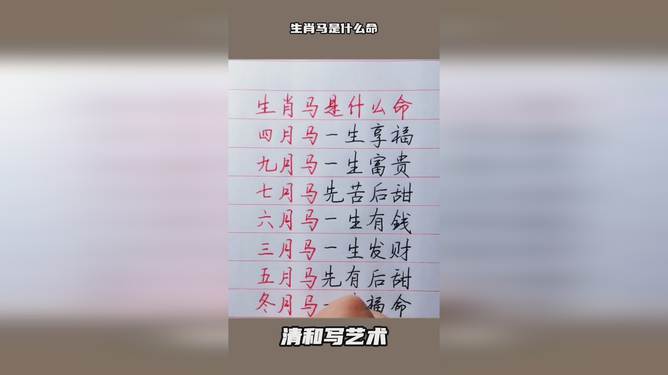 生肖马是什么命
生肖马是什么命
四月马一生享福
九月马一生富贵
七月马先苦后甜
六月马一生有钱
三月马一生发财
五月马先有后甜
冬月马一福命
清和写艺术